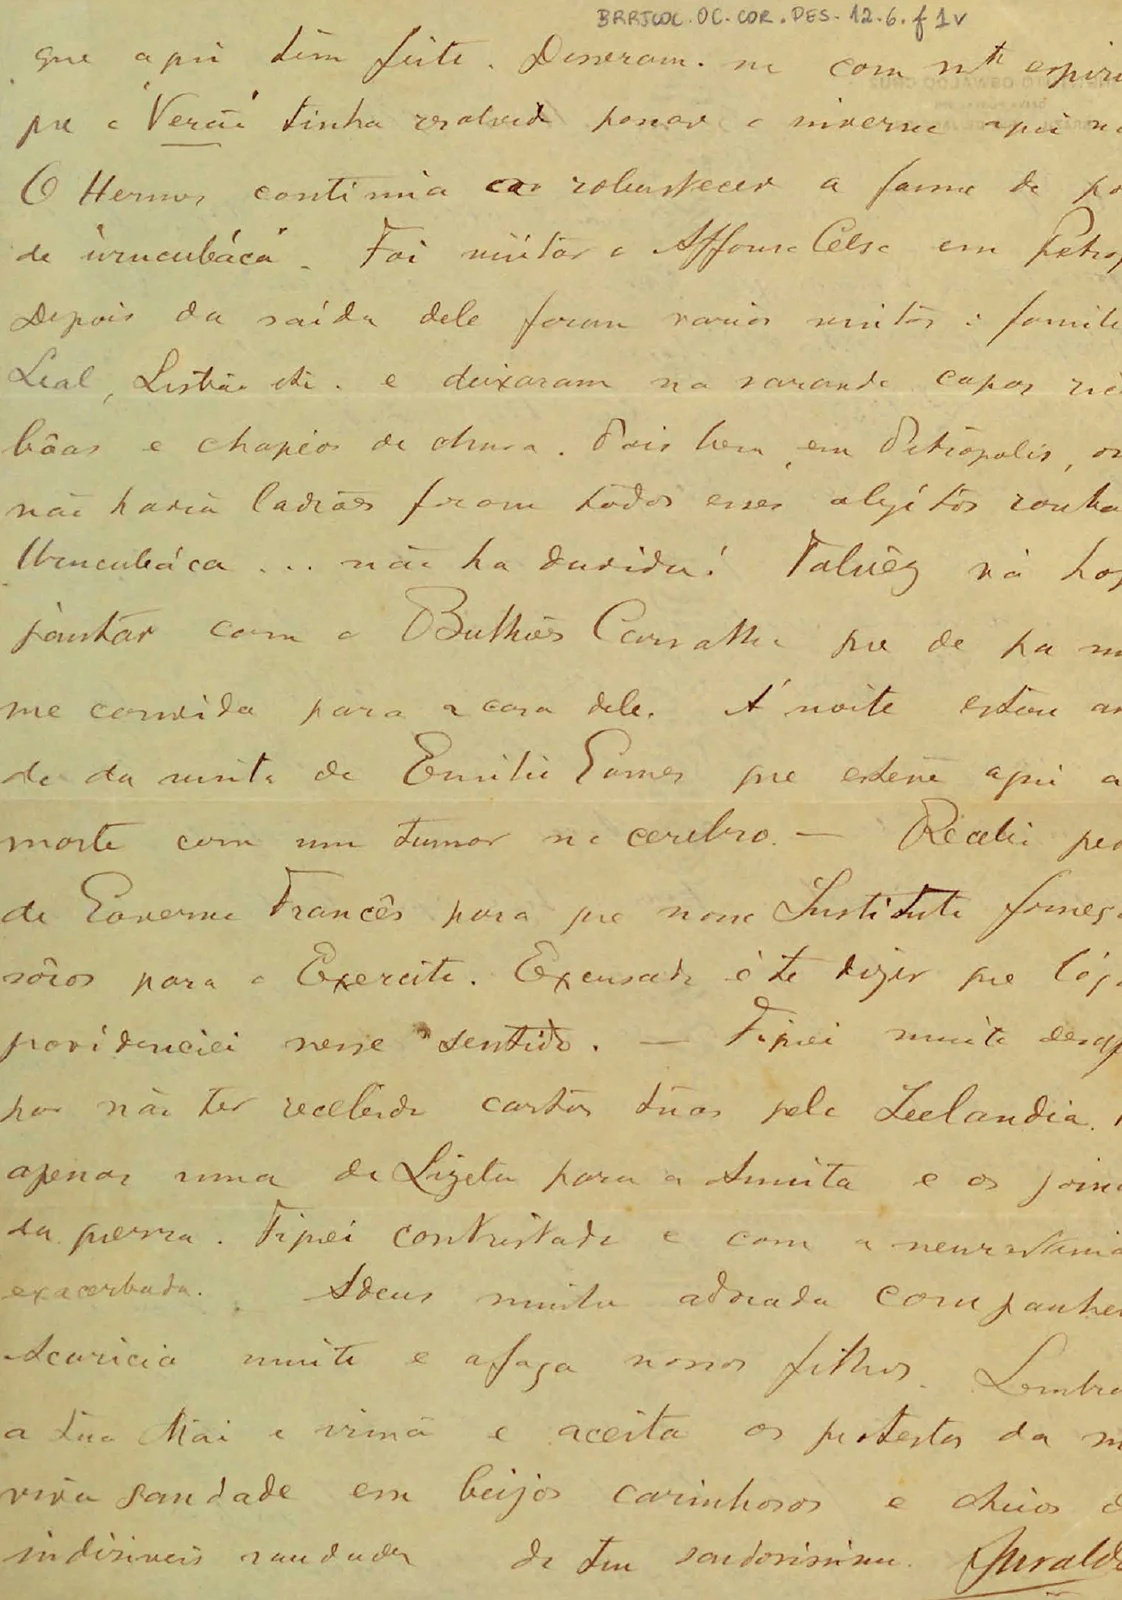 BRRJCOC.OC.COR.DES.12.6.f1v
que aqui têm feito. Disseram-me com mto espiri
que o "Verão" tinha resolvido passar o inverno aqui no
O Hermes continua a robustecer a fama de po
de "urucubáca". Foi visitar o Affonso Celso em Petrop
Depois da saída dele foram varias visitas: familia
Leal, Lisbôa etc. e deixaram na varanda capas
bôas e chapéos de chuva. Pois bem, em Petrópolis, on
não havia ladrões foram todos esses objétos rouba
Urucubáca ... não ha duvida! Talvêz vá hoj
jantar com o Bulhões Carvalho que de ha m
me convida para a casa dele. Á noite estou
de da visita do Emilio Gomes que esteve aqui a
morte com um tumor no cerebro. — Recebi ped
do Governo Francês para que nosso Instituto forneça
sôros para o Exercito. Excusado é te dizer que lógo
providenciei nesse sentido. — Fiquei muito desap
por não ter recebido cartas túas pelo Zeelandia.
apenas uma da Lizeta para a Annita e os jorna
da guerra. Fiquei contristado e com a neurastenia
exacerbada. Adeus minha adorada companhei
Acaricia muito e afaga nossos filhos. Lembra
a tua Mãi e irmã e aceita os protestos da m
viva saudade em beijos carinhosos e cheios d
indisiveis saudades do teu saudosissimo.